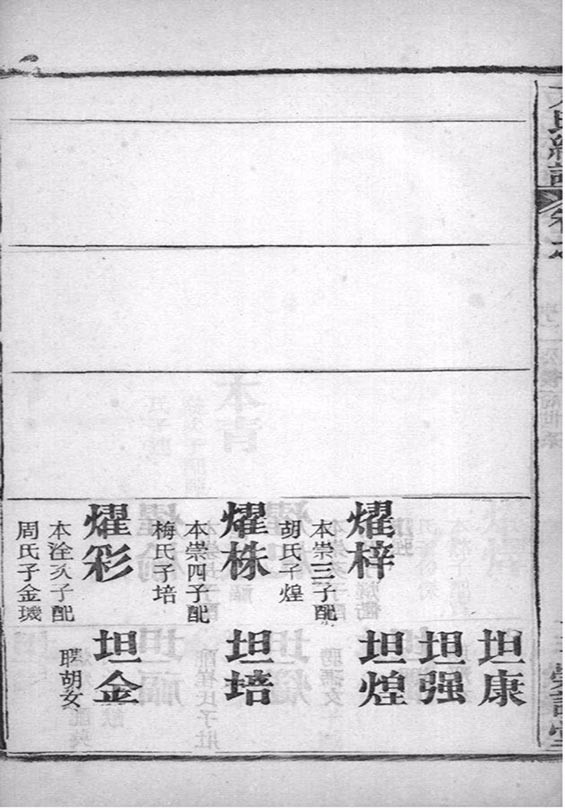 燿梓
本崇三子配
胡氏子煌
燿株
本崇四子配
梅氏子培
燿彩
本洤次子配
周氏子金璣
坦康
坦强
坦煌
坦培
坦金
聘胡女